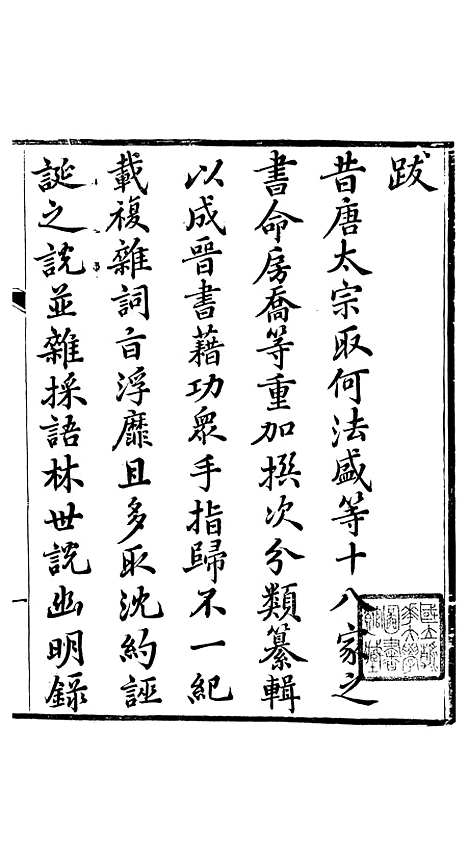 跋
昔唐太宗取何法盛等十八家之
書命房喬等重加撰次分類纂輯
以成晉書藉功衆手指歸不一紀
載複雜詞旨浮靡且多取沈約誣
誕之説並雜採語林世説幽明錄
一